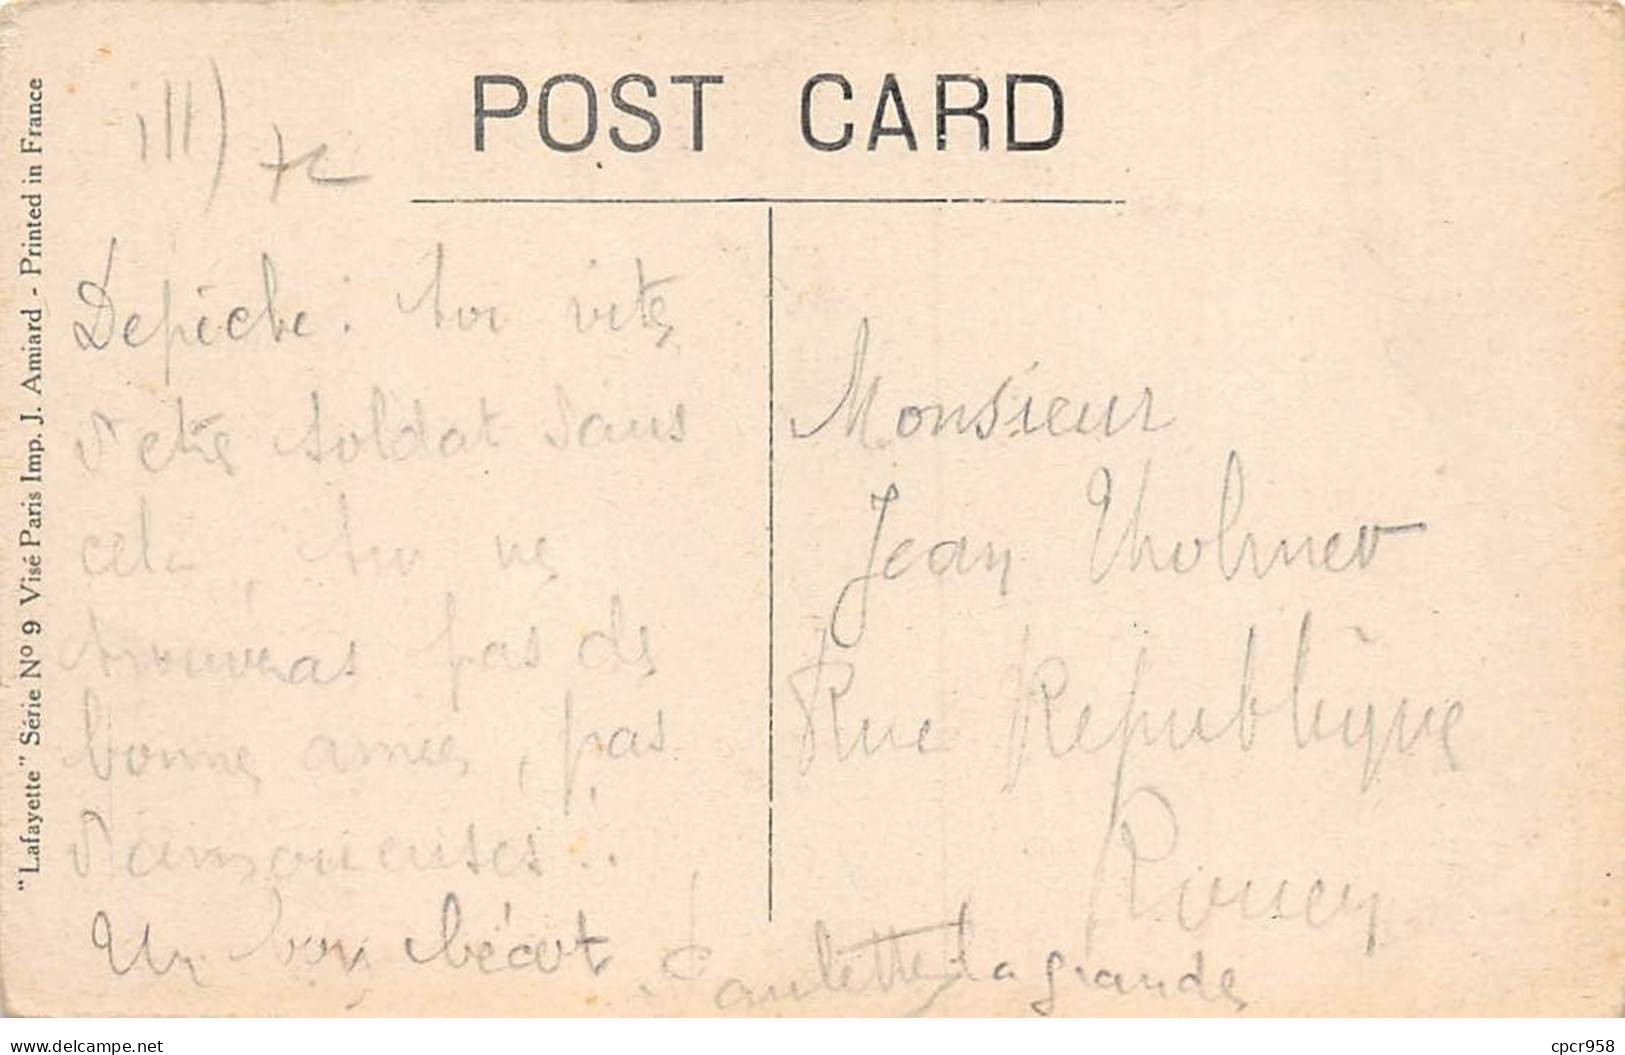 POST CARD
"Lafayette" Série Nº 9 Visé Paris Imp. J. Amiard - Printed in France
Depèche: toi vite
d'etre soldat sans
cela, tu ne
trouveras pas de
bonne amie, pas
d'amoureuses..
Un bon bécot
Paulette la grande
Monsieur
Jean
Rue République
delcampe.net
cpcr958